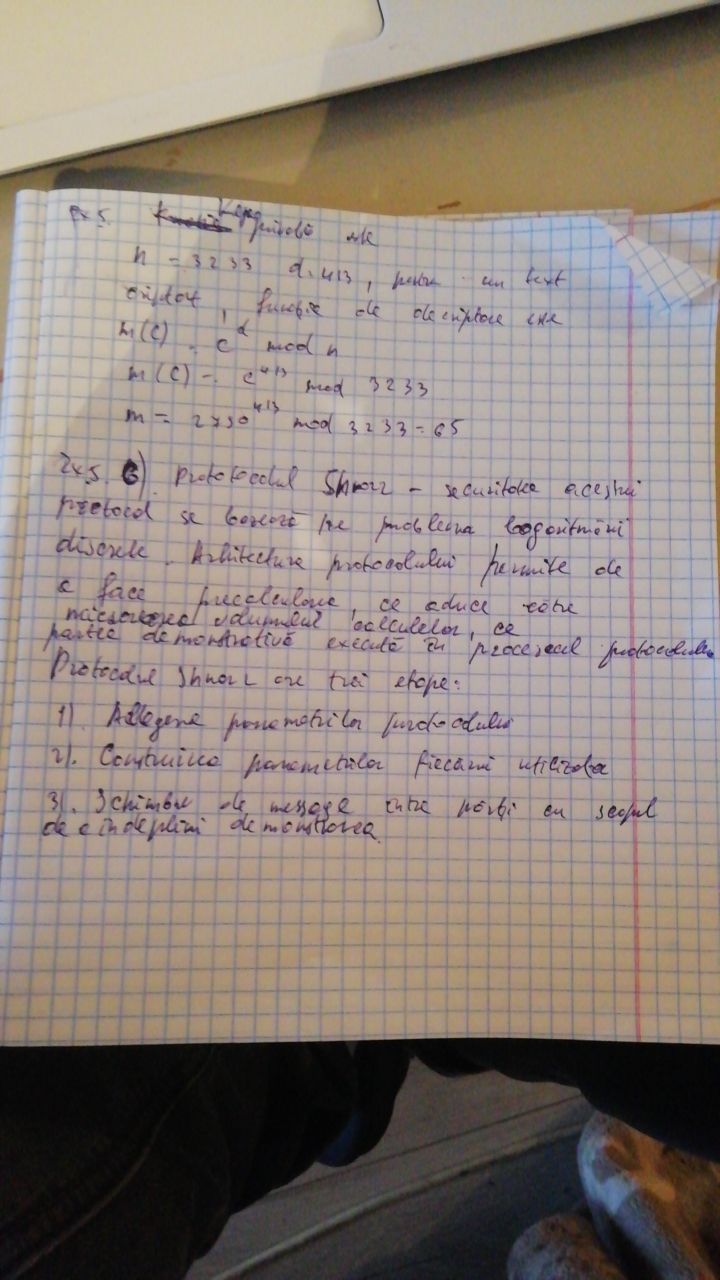 Ex 5. privată
n = 3233 d = 413, pentru un text
criptat, funcție de decriptare este
m(c) = c^d mod n
m(c) = c^413 mod 3233
m = 2790^413 mod 3233 = 65
Ex 5. 6). Protocolul Shnorr - securitatea acestui
protocol se bazează pe problema logaritmării
discrete. Arhitectura protocolului permite de
a face precalculare, ce aduce către
micșorarea volumului calculelor, ce
partea demonstrativă execută în procesul protocolului
Protocolul Shnorr are trei etape:
1). Alegerea parametrilor protocolului
2). Construirea parametrilor fiecărui utilizator
3). Schimbul de mesaje între părți cu scopul
de a îndeplini demonstrarea.